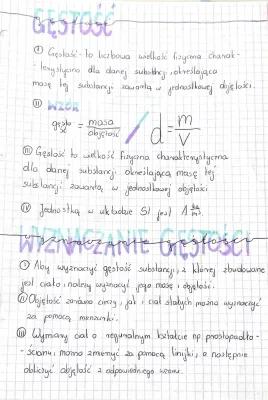 GĘSTOŚĆ
I Gęstość - to liczbowa wielkość fizyczna charak-
- terystyczna dla danej substancji, określająca
masę tej substancji zawartą w jednostkowej objętości.
II WZÓR
gęstość = masa / objętość d = m / V
III Gęstość to wielkość fizyczna charakterystyczna
dla danej substancji określająca masę tej
substancji zawartą w jednostkowej objętości
IV Jednostką w układzie SI jest 1 kg/m³.
WYZNACZANIE GĘSTOŚCI
I Aby wyznaczyć gęstość substancji, z której zbudowane
jest ciało, należy wyznaczyć jego masę i objętość.
II Objętość zarówno cieczy, jak i ciał stałych można wyznaczyć
za pomocą menzurki.
III Wymiary ciał o regularnym kształcie np prostopadło-
- ścianu można zmierzyć za pomocą linijki, a następnie
obliczyć objętość z odpowiedniego wzoru.